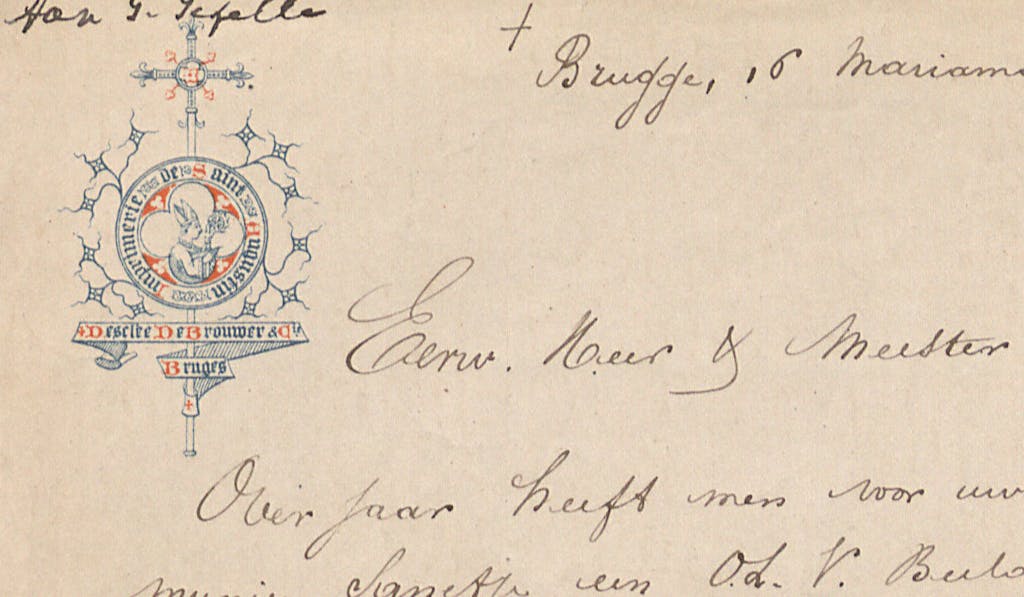 Aan G. Gezelle
+
Brugge, 16 Mariam
Imprimerie de Saint Augustin
Desclée De Brouwer & Cie
Bruges
Eerw. Heer & Meester
Over jaar heeft men voor uw
een O.L. V. Beeld